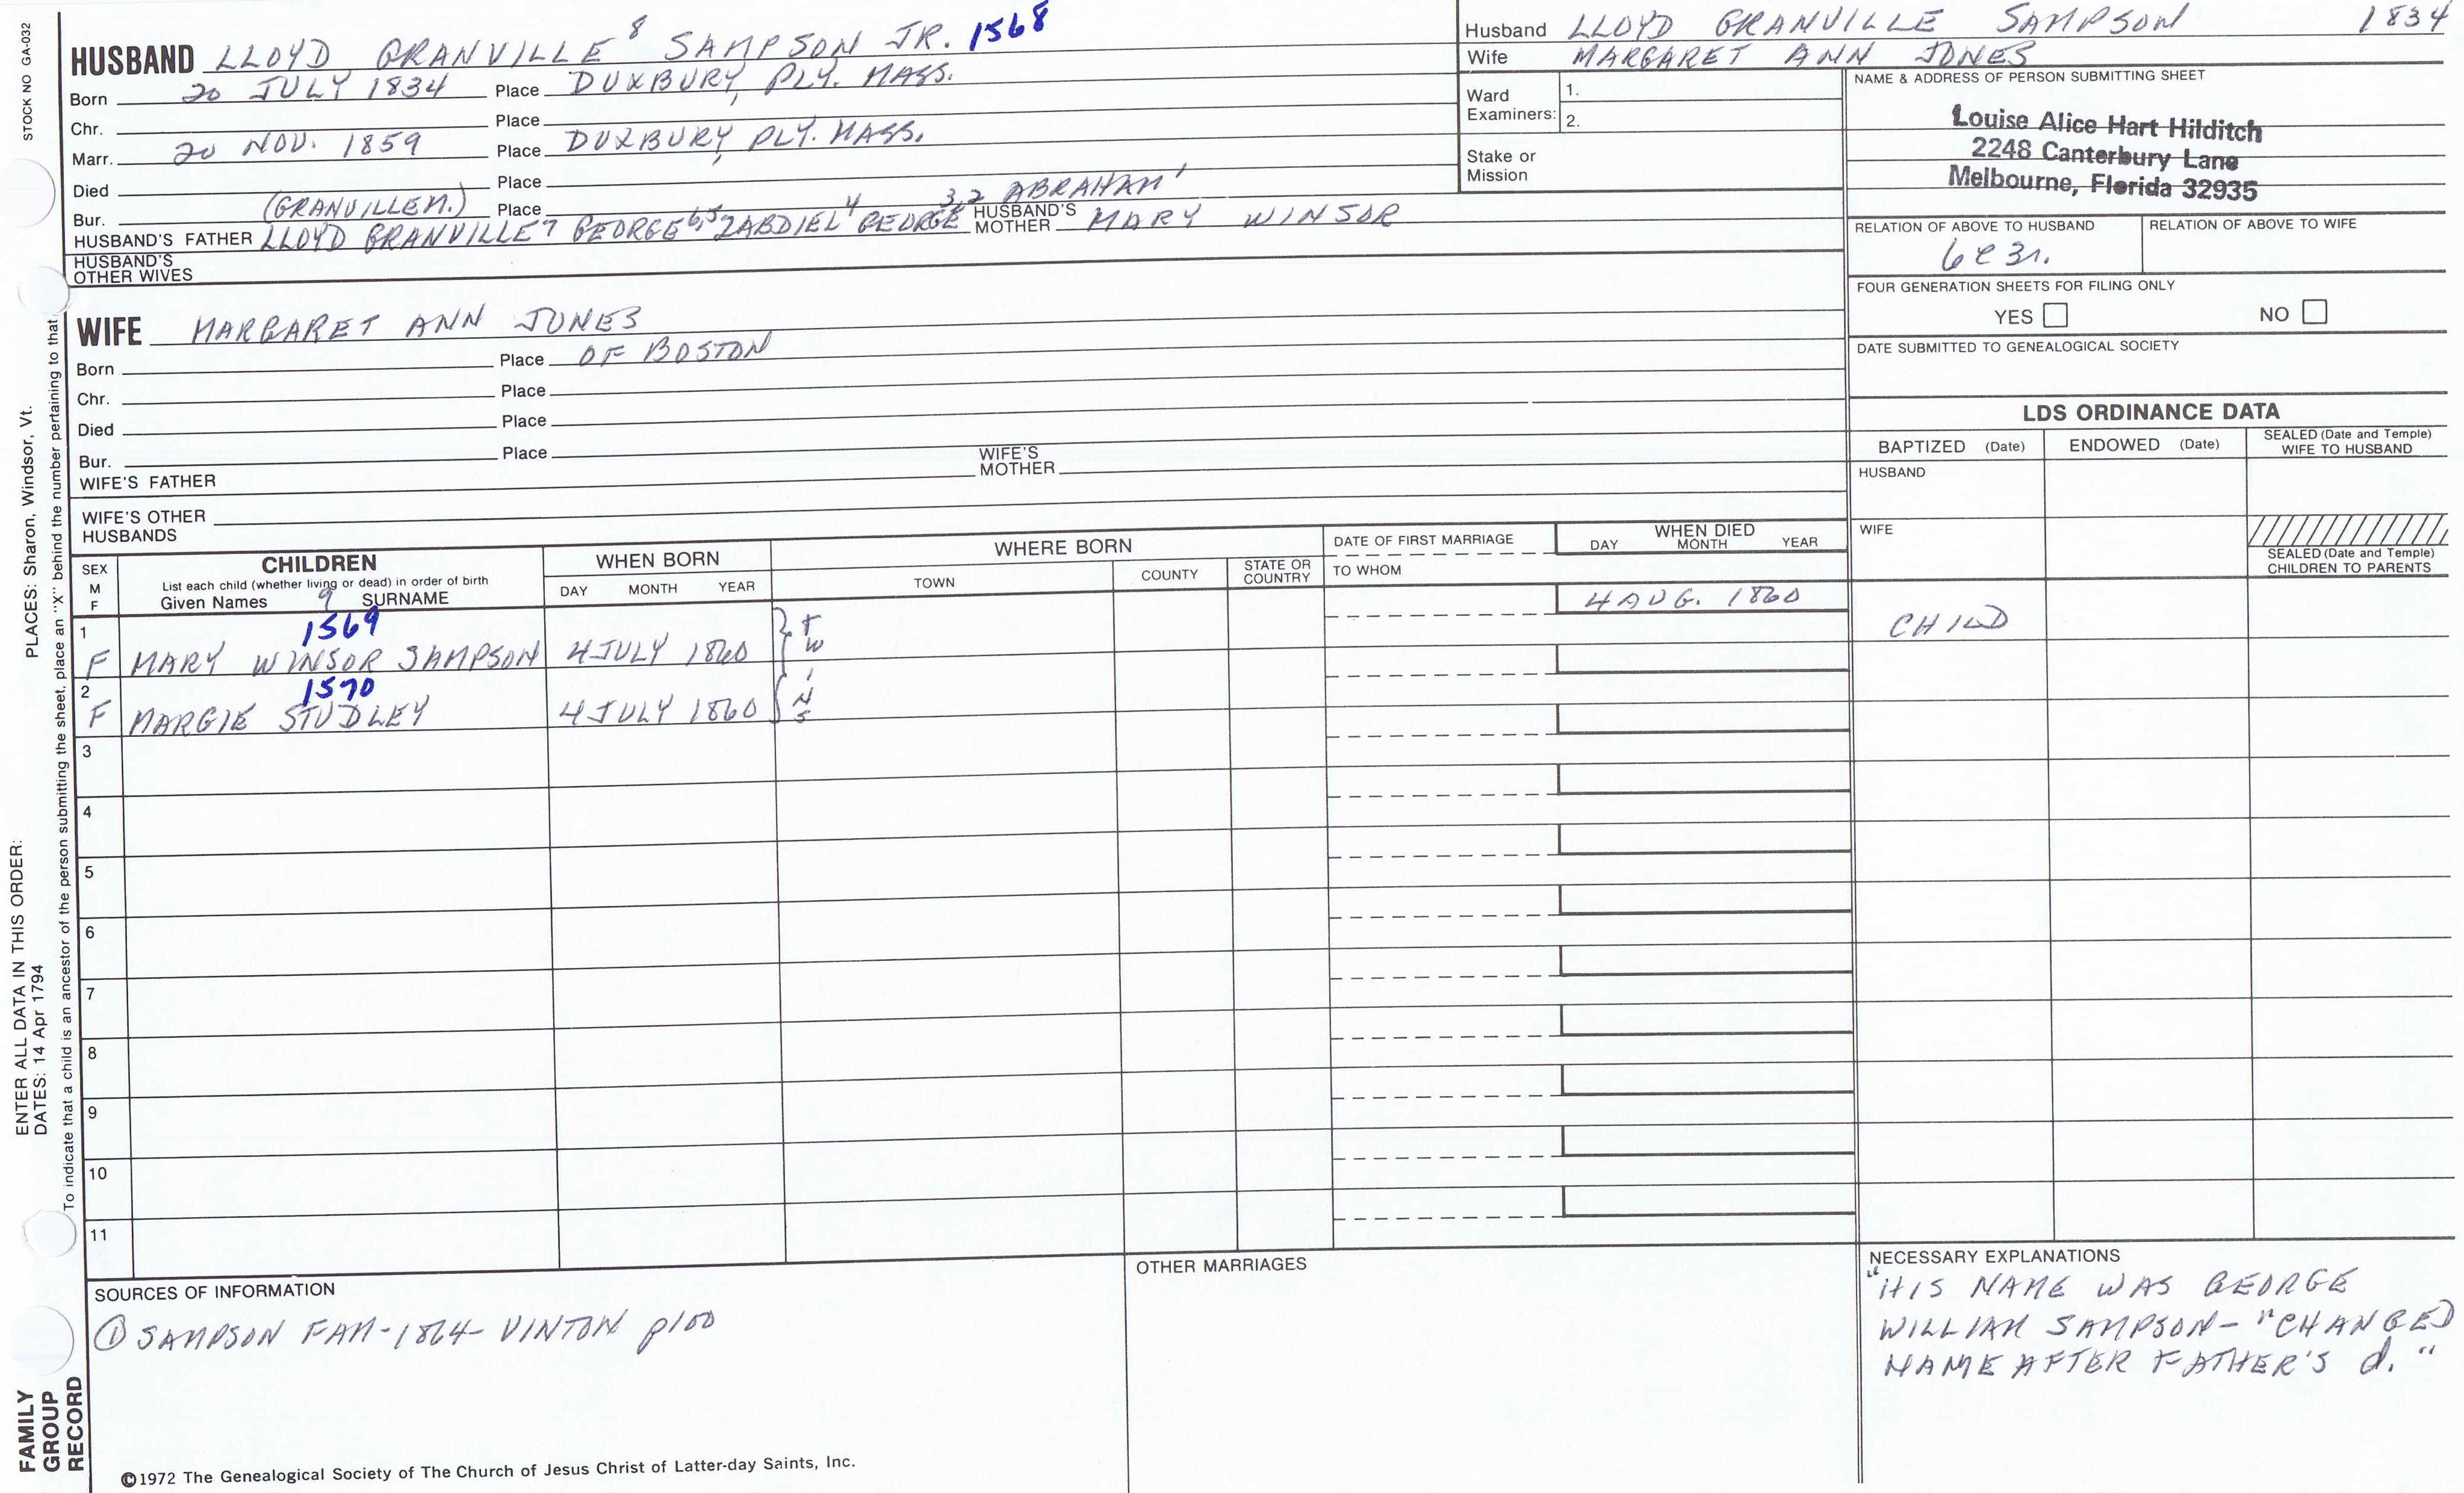 STOCK NO GA-032
HUSBAND LLOYD GRANVILLE 8 SAMPSON JR. 1568
Born 20 JULY 1834 Place DUXBURY, PLY. MASS.
Chr. Place
Marr. 20 NOV. 1859 Place DUXBURY, PLY. MASS.
Died Place
Bur. (GRANVILLE N.) Place 3,2 ABRAHAM 1
HUSBAND'S FATHER LLOYD GRANVILLE 7 GEORGE 6,5 ZABDIEL 4 GEORGE HUSBAND'S MOTHER MARY WINSOR
HUSBAND'S OTHER WIVES
Husband LLOYD GRANVILLE SAMPSON 1834
Wife MARGARET ANN JONES
Ward Examiners: 1.
2.
Stake or Mission
NAME & ADDRESS OF PERSON SUBMITTING SHEET
Louise Alice Hart Hilditch
2248 Canterbury Lane
Melbourne, Florida 32935
RELATION OF ABOVE TO HUSBAND RELATION OF ABOVE TO WIFE
6C3r.
FOUR GENERATION SHEETS FOR FILING ONLY
YES NO
DATE SUBMITTED TO GENEALOGICAL SOCIETY
WIFE MARGARET ANN JONES
Born Place OF BOSTON
Chr. Place
Died Place
Bur. Place
WIFE'S FATHER WIFE'S MOTHER
WIFE'S OTHER HUSBANDS
LDS ORDINANCE DATA
BAPTIZED (Date) ENDOWED (Date) SEALED (Date and Temple) WIFE TO HUSBAND
HUSBAND
WIFE
SEALED (Date and Temple) CHILDREN TO PARENTS
SEX M F
CHILDREN
List each child (whether living or dead) in order of birth
Given Names 9 SURNAME
WHEN BORN
DAY MONTH YEAR
WHERE BORN
TOWN COUNTY STATE OR COUNTRY
DATE OF FIRST MARRIAGE
TO WHOM
WHEN DIED
DAY MONTH YEAR
1 1569 4 AUG. 1860
F MARY WINSOR SAMPSON 4 JULY 1860 TWINS CHILD
2 1570
F MARGIE STUDLEY 4 JULY 1860
3
4
5
6
7
8
9
10
11
SOURCES OF INFORMATION
① SAMPSON FAM-1864- VINTON p100
OTHER MARRIAGES
NECESSARY EXPLANATIONS
"HIS NAME WAS GEORGE
WILLIAM SAMPSON- "CHANGED
NAME AFTER FATHER'S d."
©1972 The Genealogical Society of The Church of Jesus Christ of Latter-day Saints, Inc.
FAMILY
GROUP
RECORD
ENTER ALL DATA IN THIS ORDER:
DATES: 14 Apr 1794
PLACES: Sharon, Windsor, Vt.
To indicate that a child is an ancestor of the person submitting the sheet, place an "X" behind the number pertaining to that